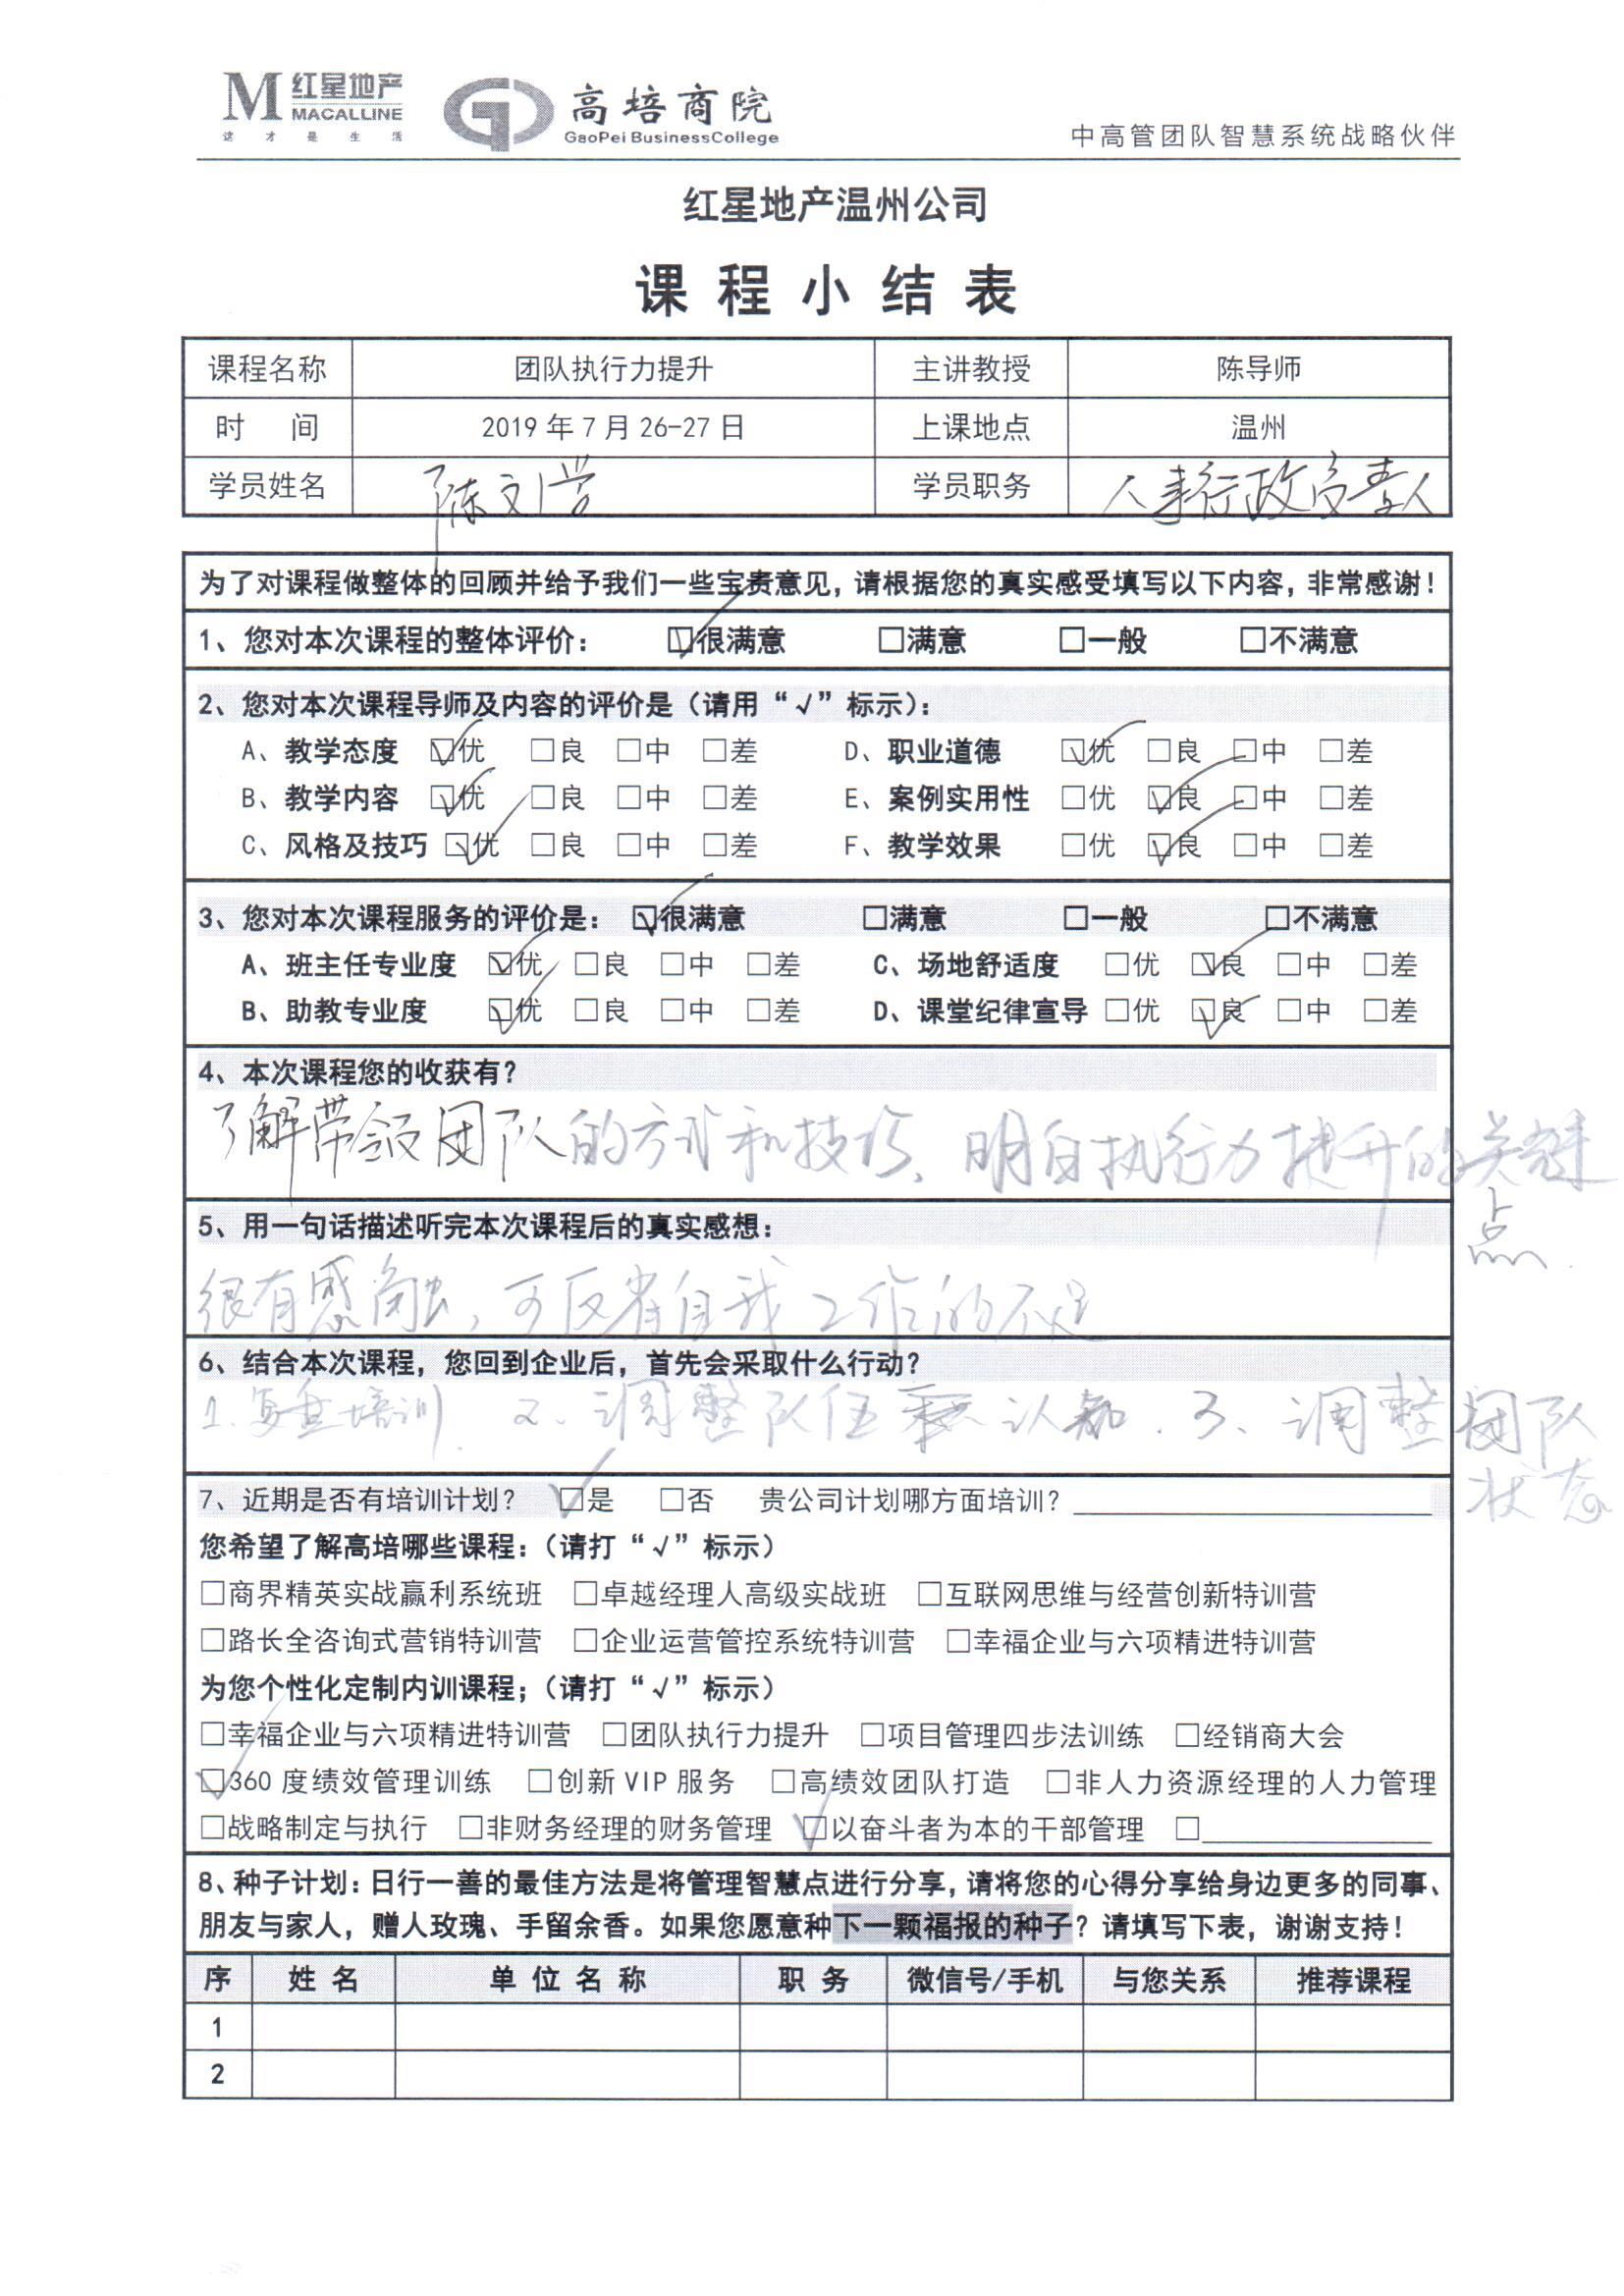 M 红星地产 MACALLINE
这才是生活
高培商院
GaoPei BusinessCollege
中高管团队智慧系统战略伙伴
红星地产温州公司
课程小结表
课程名称 团队执行力提升 主讲教授 陈导师
时 间 2019年7月26-27日 上课地点 温州
学员姓名 陈文学 学员职务 人事行政负责人
为了对课程做整体的回顾并给予我们一些宝贵意见，请根据您的真实感受填写以下内容，非常感谢！
1、您对本次课程的整体评价： ☑很满意 □满意 □一般 □不满意
2、您对本次课程导师及内容的评价是（请用“√”标示）：
A、教学态度 ☑优 □良 □中 □差 D、职业道德 ☑优 □良 □中 □差
B、教学内容 ☑优 □良 □中 □差 E、案例实用性 □优 ☑良 □中 □差
C、风格及技巧 ☑优 □良 □中 □差 F、教学效果 □优 ☑良 □中 □差
3、您对本次课程服务的评价是： ☑很满意 □满意 □一般 □不满意
A、班主任专业度 ☑优 □良 □中 □差 C、场地舒适度 □优 ☑良 □中 □差
B、助教专业度 ☑优 □良 □中 □差 D、课堂纪律宣导 □优 ☑良 □中 □差
4、本次课程您的收获有？
了解带领团队的方式和技巧、明白执行力提升的关键
点.
5、用一句话描述听完本次课程后的真实感想：
很有感触，可反省自我工作的不足
6、结合本次课程，您回到企业后，首先会采取什么行动？
1.复盘培训. 2、调整队伍认知. 3、调整团队
状态
7、近期是否有培训计划？ ☑是 □否 贵公司计划哪方面培训？
您希望了解高培哪些课程：（请打“√”标示）
□商界精英实战赢利系统班 □卓越经理人高级实战班 □互联网思维与经营创新特训营
□路长全咨询式营销特训营 □企业运营管控系统特训营 □幸福企业与六项精进特训营
为您个性化定制内训课程；（请打“√”标示）
□幸福企业与六项精进特训营 □团队执行力提升 □项目管理四步法训练 □经销商大会
☑360度绩效管理训练 □创新VIP服务 □高绩效团队打造 □非人力资源经理的人力管理
□战略制定与执行 □非财务经理的财务管理 ☑以奋斗者为本的干部管理 □
8、种子计划：日行一善的最佳方法是将管理智慧点进行分享，请将您的心得分享给身边更多的同事、
朋友与家人，赠人玫瑰、手留余香。如果您愿意种下一颗福报的种子？请填写下表，谢谢支持！
序 姓名 单位名称 职务 微信号/手机 与您关系 推荐课程
1
2